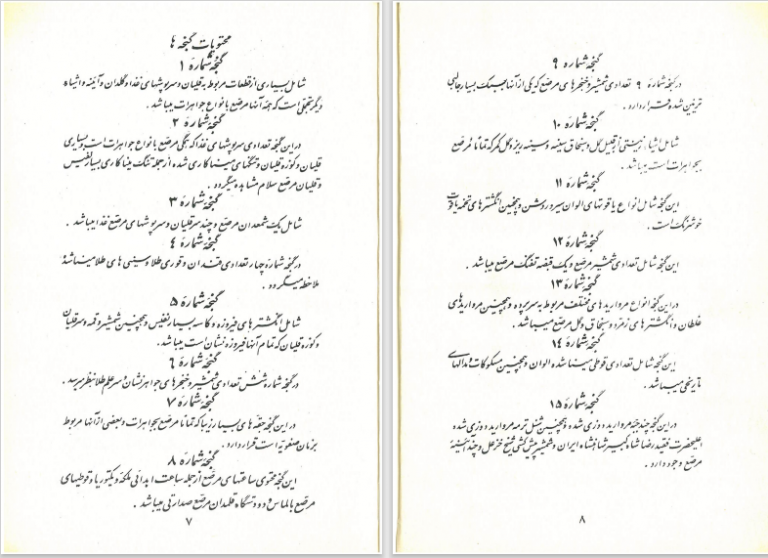 محتویات گنجه ها
گنجهٔ شمارهٔ ۱
شامل بسیاری از قطعات مربوط به قلیان و سرپوشهای غذا و گلدان و آئینه و اشیاء
دیگر تجملی است که همهٔ آنها مرصع بانواع جواهرات میباشد .
گنجهٔ شمارهٔ ۲
در این گنجه تعدادی سرپوشهای غذا که همگی مرصع بانواع جواهرات است و بسیاری
قلیان و کوزه قلیان و تنگهای میناکاری شده از جمله تنگ میناکاری بسیار نفیس
و قلیان مرصع سلام مشاهده میگردد .
گنجهٔ شمارهٔ ۳
شامل یک شمعدان مرصع و چند سرقلیان و سرپوشهای مرصع غذا میباشد .
گنجهٔ شمارهٔ ۴
در گنجه شمارهٔ چهار تعدادی قندان و قوری طلا و سینی های طلا میناشدهٔ
ملاحظه میگردد .
گنجهٔ شمارهٔ ۵
شامل انگشترهای فیروزه و کاسه بسیار نفیس و همچنین شمشیر و قمه و سرقلیان
و کوزه قلیان که تمام آنها فیروزه نشان است میباشد .
گنجهٔ شمارهٔ ۶
در گنجه شماره شش تعدادی شمشیر و خنجرهای جواهرنشان و سرعلم طلا بنظر میرسد .
گنجهٔ شمارهٔ ۷
در این گنجه حقه های بسیار زیبا که تماماً مرصع بجواهرات و بعضی از آنها مربوط
بزمان صفویه است قرار دارد .
گنجهٔ شمارهٔ ۸
این گنجه محتوی ساعتهای مرصع از جمله ساعت اهدائی ملکه ویکتوریا و قوطیهای
مرصع بالماس و دو دستگاه قلمدان مرصع صدارتی میباشد .
۷
گنجهٔ شمارهٔ ۹
در گنجه شمارهٔ ۹ تعدادی شمشیر و خنجرهای مرصع که یکی از آنها بسبک بسیار جالبی
تزئین شده قرار دارد .
گنجهٔ شمارهٔ ۱۰
شامل اشیاء زینتی از قبیل گل و سنجاق سینه و سینه ریز و گل کمر که تماماً مرصع
بجواهرات است میباشد .
گنجهٔ شمارهٔ ۱۱
این گنجه شامل انواع یاقوتهای الوان سیر و روشن و همچنین انگشترهای تخمه یاقوت
خوشرنگ است .
گنجهٔ شمارهٔ ۱۲
این گنجه شامل تعدادی شمشیر مرصع و یک قبضه تفنگ مرصع میباشد .
گنجهٔ شمارهٔ ۱۳
در این گنجه انواع مرواریدهای مختلف مربوط به سرپرده و همچنین مرواریدهای
غلطان و انگشترهای زمرد و سنجاق و گل مرصع میباشد .
گنجهٔ شمارهٔ ۱۴
این گنجه شامل تعدادی قوطی میناشده الوان و همچنین مسکوکات و مدالهای
تاریخی میباشد .
گنجهٔ شمارهٔ ۱۵
در این گنجه چند جبه مروارید دوزی شده و همچنین شنل ترمه مروارید دوزی شده
اعلیحضرت فقید رضا شاه کبیر شاهنشاه ایران و شمشیر پیشکشی شیخ خزعل و چند آئینهٔ
مرصع وجود دارد .
۸